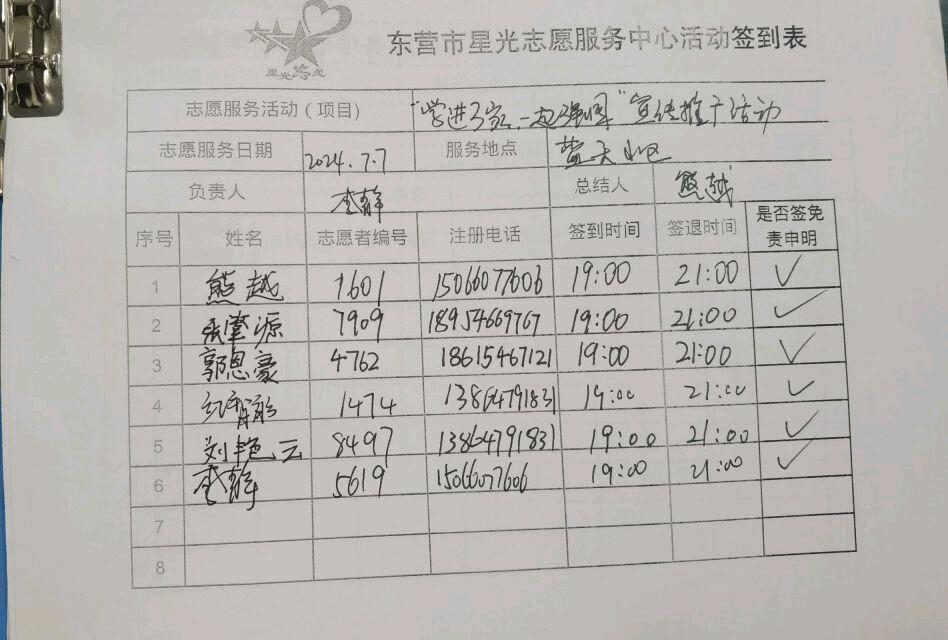 星光志愿
东营市星光志愿服务中心活动签到表
志愿服务活动（项目） 宣传推广活动
志愿服务日期 2024.7.7 服务地点 蓝天小区
负责人 李静 总结人 熊越
序号 姓名 志愿者编号 注册电话 签到时间 签退时间 是否签免责申明
1 熊越 1601 15066077606 19:00 21:00 ✓
2 7909 18954669767 19:00 21:00 ✓
3 郭恩豪 4762 18615467121 19:00 21:00 ✓
4 1474 13864791831 19:00 21:00 ✓
5 刘艳云 8497 13864791831 19:00 21:00 ✓
6 李静 5619 15066077606 19:00 21:00 ✓
7
8